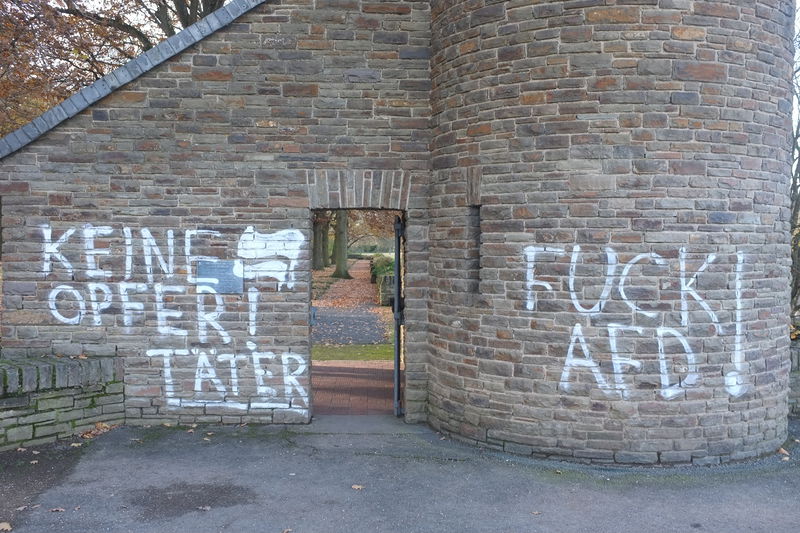 KEINE
OPFER!
TÄTER
FUCK!
AFD!